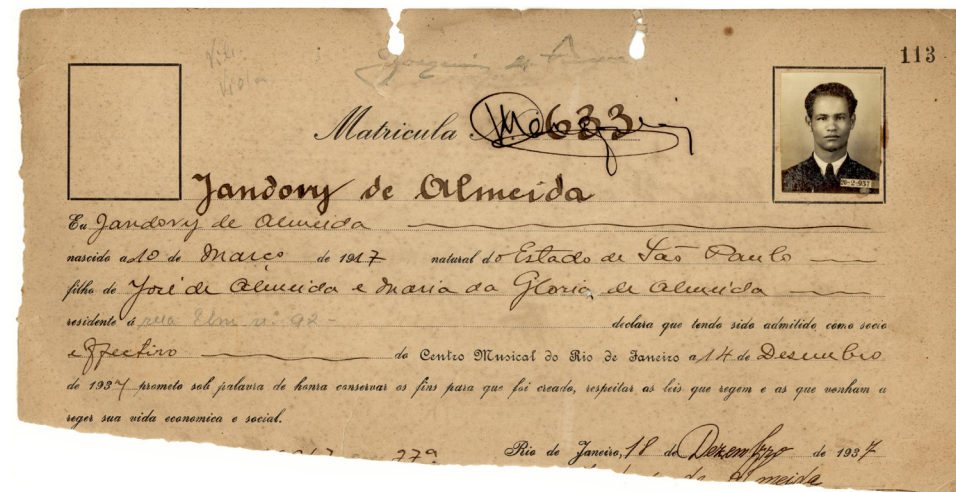 113
Viola
Matricula Nº 633
20-2-937
Jandovy de Almeida
Eu Jandovy de Almeida
nascido a 10 de Março de 1917 natural do Estado de São Paulo
filho de José de Almeida e Maria da Gloria de Almeida
residente á rua nº 92 declara que tendo sido admitido como socio
effectivo do Centro Musical do Rio de Janeiro a 14 de Desembro
de 1937 prometo sob palavra de honra conservar os fins para que foi creado, respeitar as leis que regem e as que venham a
reger sua vida economica e social.
Rio de Janeiro, 18 de Dezembro de 1937
de Almeida